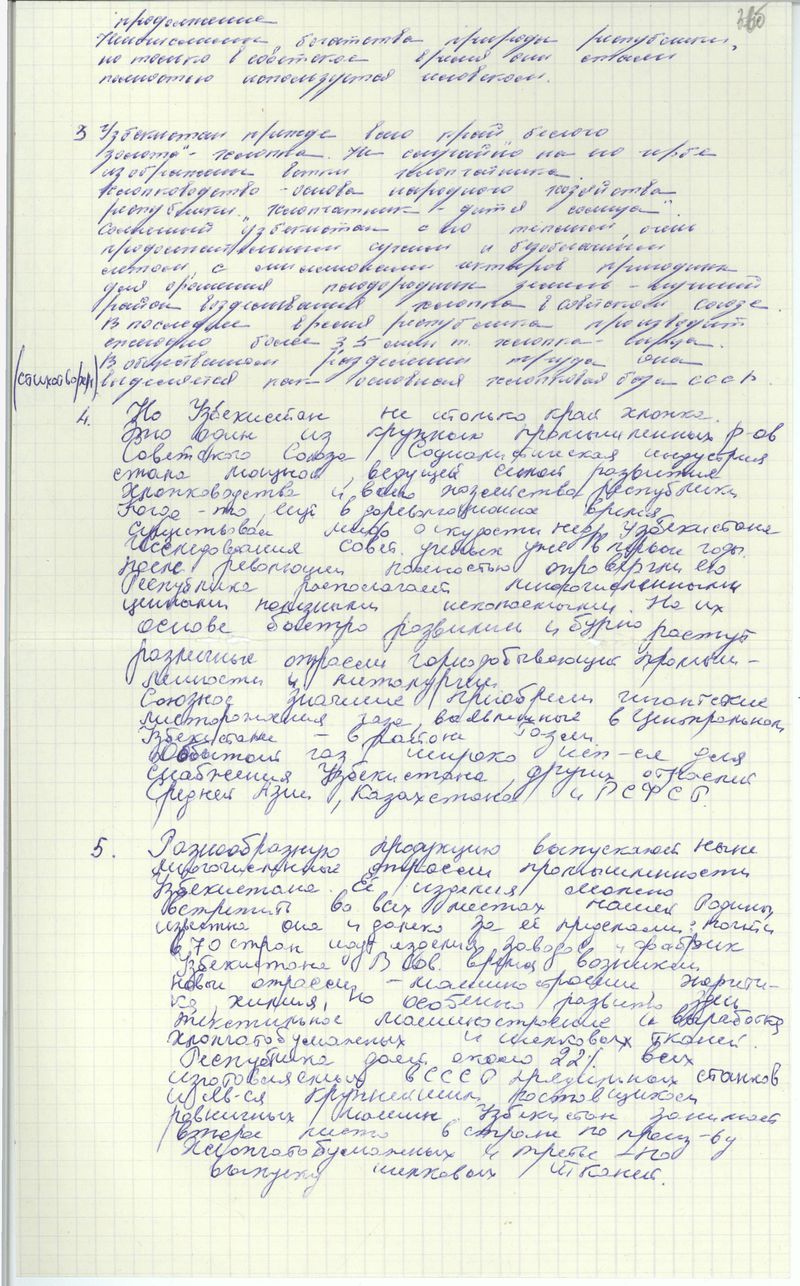 продолжение
Неисчислимы богатства природы республики,
но только в советское время они стали
полностью используются человеком.
3 Узбекистан прежде всего край „белого
золота" - хлопка. Не случайно на его гербе
изображены ветки хлопчатника.
Хлопководство - основа народного хозяйства
республики. „Хлопчатник - дитя солнца".
Солнечный Узбекистан с его теплым, очень
продолжительным сухим и безоблачным
летом, с миллионами гектаров пригодных
для орошения плодородных земель - лучший
район возделывания хлопка в Советском Союзе.
В последнее время республика производит
ежегодно более 3,5 млн т. хлопка-сырца.
В общественном разделении труда она
(стихотворен.) выделяется как основная хлопковая база СССР.
4. Но Узбекистан не только край хлопка.
Это один из крупных промышленных р-ов
Советского Союза. Социалистическая индустрия
стала мощной, ведущей силой развития
хлопководства и всего хозяйства республики
Когда-то, ещё в дореволюционное время,
существовал миф о скудости недр Узбекистана
Исследования совет. ученых уже в первые годы
после революции полностью опровергли его
Республика располагает многочисленными
ценными полезными ископаемыми. На их
основе быстро развились и бурно растут
различные отрасли горнодобывающей промыш-
ленности и металлургии.
Союзное значение приобрели гигантские
месторождения газа, выявленные в Центральном
Узбекистане - в районе
Добытый газ широко исп-ся для
снабжения Узбекистана, других отраслей
Средней Азии, Казахстана и РСФСР.
5. Разнообразную продукцию выпускают ныне
многочисленные отрасли промышленности
Узбекистана. Её изделия можно
встретить во всех местах нашей Родины,
известна она и далеко за её пределами: почти
в 70 стран идут изделия заводов и фабрик
Узбекистана. В сов. время возникли
новые отрасли - машиностроение, энергети-
ка, химия, но особенно развито здесь
текстильное машиностроение и выработка
хлопчатобумажных и шелковых тканей.
Республика дает около 22% всех
изготовляемых в СССР прядильных станков
и яв-ся крупнейшим поставщиком
ровничных машин. Узбекистан занимает
второе место в стране по произ-ву
хлопчатобумажных и третье - по
выпуску шелковых тканей.